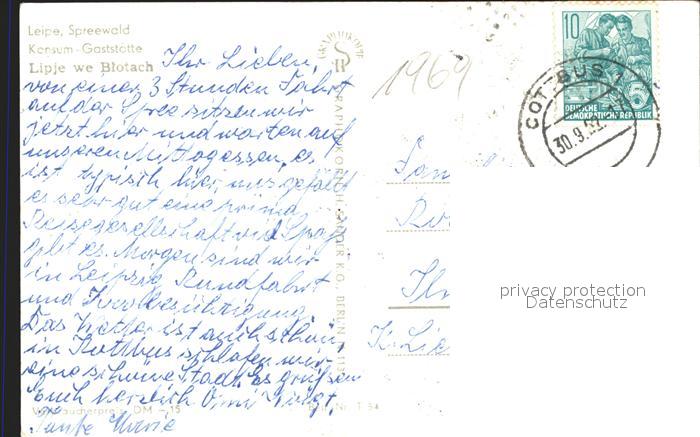 Leipe, Spreewald
Konsum-Gaststätte
Lipje we Błotach
Ihr Lieben,
von einer 3 Stunden Fahrt
auf der Spree sitzen wir
jetzt hier und warten auf
unseren Mittagessen, es
ist typisch hier, uns gefällt
es sehr gut eine prima
Reisegesellschaft viel Spaß
gibt es. Morgen sind wir
in Leipzig Rundfahrt
und
Das Wetter ist auch schön,
in Kottbus schlafen wir
eine schöne Stadt. Es grüßen
Euch herzlich Omi
Tante
Verbraucherpreis DM -,15
1969
10
DEUTSCHE
DEMOKRATISCHE REPUBLIK
COTTBUS 1
30.9.
K. Lie
privacy protection
Datenschutz